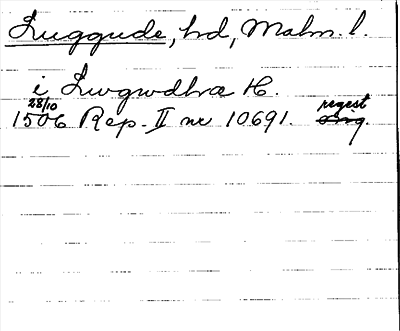 Luggude, hd, Malm. l.
i Lwgwdhræ H.
28/10
1506 Rep. II nr 10691. regist